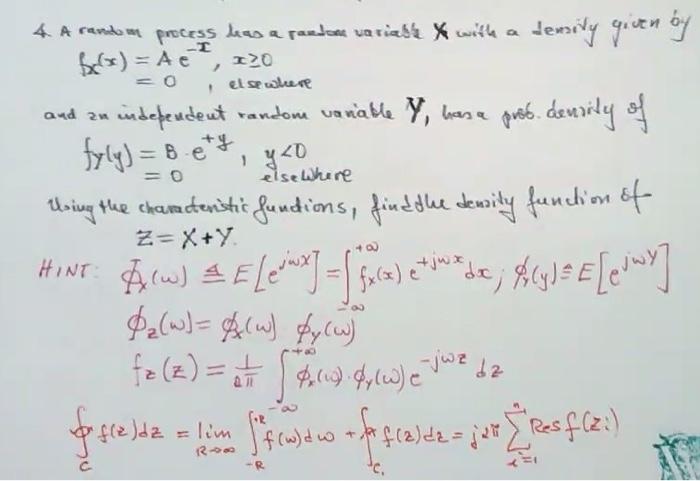 4. A random process has a random variable X with a density given by
fx(x) = A e^-x, x≥0
= 0, elsewhere
and an independent random variable Y, has a prob. density of
fy(y) = B·e^+y, y<0
= 0 elsewhere
Using the characteristic functions, find the density function of
Z = X+Y.
HINT: Φx(ω) ≜ E[e^jωX] = ∫_-∞^+∞ fx(x) e^+jωx dx; ϕy(y) ≜ E[e^jωY]
ϕz(ω) = ϕx(ω) ϕy(ω)
fz(z) = 1/2π ∫_-∞^+∞ ϕx(ω)·ϕy(ω) e^-jωz dz
∮_C f(z)dz = lim_R→∞ ∫_-R^+R f(ω)dω + ∮_C₁ f(z)dz = j2π Σ_i=1^n Res f(Zi)